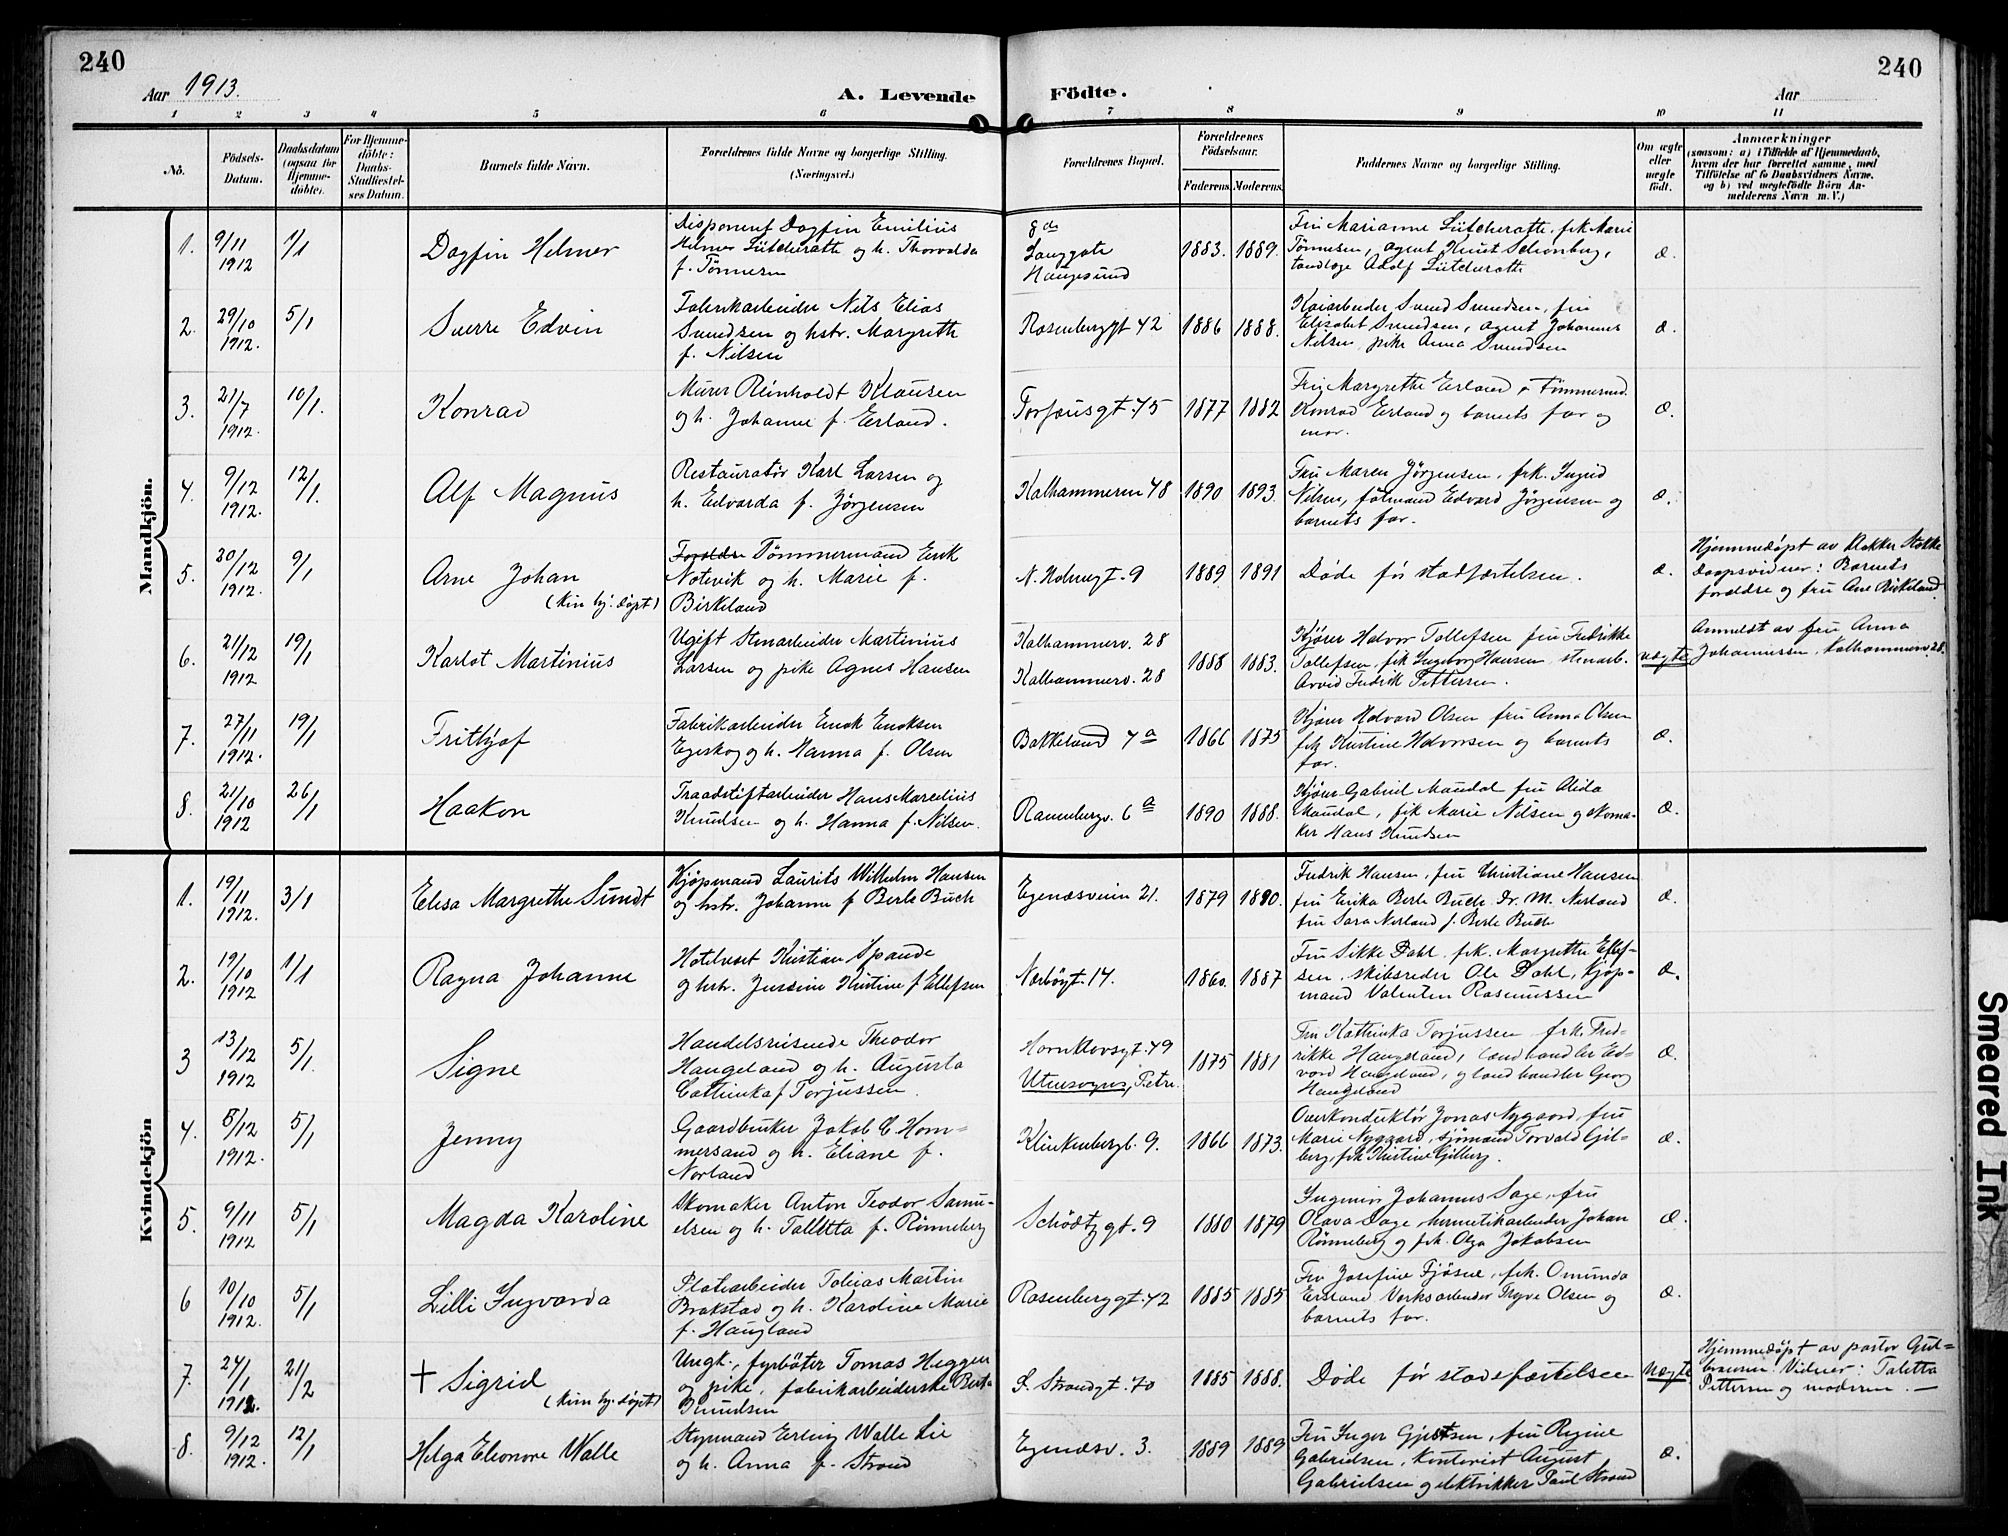 240
240
Aar 1913.
A. Levende Födte.
Aar
1 2 3 4 5 6 7 8 9 10 11
No.
Födsels-Datum.
Daabsdatum (ogsaa for Hjemmedöbte).
For Hjemmedöbte: Daabs-Stadfæstelses Datum.
Barnets fulde Navn.
Forældrenes fulde Navne og borgerlige Stilling. (Næringsvei.)
Forældrenes Bopæl.
Forældrenes Födselsaar.
Faderens. Moderens.
Faddernes Navne og borgerlige Stilling.
Om ægte eller uægte født.
Anmærkninger
(saasom: a) i Tilfælde af Hjemmedaab, hvem der har forrettet samme, med Tilföielse af to Daabsvidners Navne, og b) ved uægtefödte Börn Anmelderens Navn m. V.)
Mandkjön.
1. 9/11 1912 1/1 Dagfin Helmer
Disponent Dagfin Emilius
Helmer Lütcherath og h. Thorvalda
f. Tønnesen
Langgate
Haugesund
1883. 1889.
Fru Marianne Lütcherath, frk Marie
Tønnesen, agent Knut Schønberg,
tandlæge Adolf Lütcherath
æ.
2. 29/10 1912. 5/1 Sverre Edvin
Fabrikarbeider Nils Elias
Svendsen og hstr. Margreth
f. Nilsen
Rosenberggt 42 1886 1888.
Kaiarbeider Svend Svendsen, fru
Elisabet Svendsen, agent Johannes
Nilsen, pike Anna Svendsen
æ
3. 21/7 1912. 10/1. Konrad
Murer Reinholdt Klausen
og h. Johanne f. Erland.
Torfæusgt. 45 1877 1882
Fru Margrethe Erland, Tømmermd.
Konrad Erland og barnets far og
mor.
æ.
4. 9/12 1912. 12/1. Alf Magnus
Restauratør Karl Larsen og
h. Edvarda f. Jørgensen
Kalhammeren 48 1890 1893
Fru Maren Jørgensen, frk. Ingrid
Nilsen, følmand Edvard Jørgensen og
barnets far.
æ.
5. 30/12 1912. 9/1 Arne Johan
(kun hj. døpt)
Forældre Tømmermand Erik
Notevik og h. Marie f.
Birkeland
N. Holmegt. 9 1889 1891 Døde før stadfæstelsen. æ.
Hjemmedøpt av klokker Stokke
daapsvidner: Barnets
forældre og fru Ane Birkeland
6. 21/12 1912 19/1 Karlot Martinius
Ugift Stenarbeider Martinius
Larsen og pike Agnes Hansen
Kalhammerv. 28
Kalhammerv. 28
1888 1883.
Kjører Halvor Tollefsen fru Fredrikke
Tollefsen, frk Ingeborg Hansen, stenarb.
Arvid Fredrik Pettersen.
uægte
Anmeldt av fru Anna
Johannessen, Kalhammerv 28.
7. 27/11 1912. 19/1 Frithjof
Fabrikarbeider Enok Enoksen
Egeskog og h. Hanna f. Olsen
Bakkeland 4 a 1866 1875
Kjører Halvard Olsen fru Anna Olsen
frk Kristine Halvorsen og barnets
far.
æ.
8. 21/10 1912 26/1 Haakon
Traadstiftarbeider Hans Marelius
Knudsen og h. Hanna f. Nilsen.
Ramsbergv. 6 a 1890 1888.
Kjører Gabriel Maudal fru Alida
Maudal, frk Marie Nilsen og skomaker
Hans Knudsen
æ.
Kvindekjön
1. 19/11 1912. 3/1 Elisa Margrethe Sundt
Kjøpmand Laurits Wilhelm Hansen
og hstr. Johanne f Berle Buch
Egenæsveien 21. 1879 1880.
Fredrik Hansen, fru Christiane Hansen
fru Erika Berle Buch. Dr. M. Nerland
fru Sara Nerland f. Berle Buch
æ.
2. 19/10 1912 1/1 Ragna Johanne
Hotelvert Kristian Spande
og hstr. Jensine Kristine f Ellefsen
Nørbøgt. 14. 1860. 1887
Fru Sikke Dahl, frk. Margrethe Ellefsen,
skibsreder Ole Dahl, kjøpmand
Valenten Rasmussen
æ.
3 13/12 1912 5/1. Signe
Handelsreisende Theodor
Haugeland og h. Augusta
Cathinka f Torjussen.
Hornklovsgt. 49
Utensogns, Petri.
1875 1881
Fru Kathinka Torjussen frk. Fredrikke
Haugeland, landhandler Edvard
Haugeland, og landhandler Georg
Haugeland
æ.
4. 5/12 1912. 5/1 Jenny
Gaardbruker Jakob C Hommersand
og h. Eliane f.
Norland
Klinkenbergt. 9. 1866 1873.
Overkonduktør Jonas Nygaard, fru
Marie Nygaard, sjømand Torvald Gilberg,
frk Kristine Gilberg.
æ.
5. 9/11 1912 5/1 Magda Karoline
Skomaker Anton Teodor Samuelsen
og h. Talletta f. Rønneberg
Schødtzgt. 9 1880 1879
Ingeniør Johannes Sage, fru
Olava Sage hermetikarbeider Johan
Rønneberg og frk. Olga Jakobsen
æ.
6 10/10 1912. 5/1 Lilli Ingvarda
Platearbeider Tobias Martin
Brakstad og h. Karoline Marie
f. Haugland
Rosenberggt. 42 1885 1885
Fru Josefine Fjøsne, frk. Omunda
Ersland Verksarbeider Trygve Olsen og
barnets far.
æ.
7. 24/1 1912. 21/2 † Sigrid
(kun hj. døpt)
Ungk., fyrbøter Tomas Heggen
og pike, fabrikarbeiderske Berta
Knudsen
S. Strandgt. 70 1885 1888. Døde før stadfæstelse uægte
Hjemmedøpt av pastor Gulbransen.
Vidner: Taletta
Pettersen og moderen. —
8. 9/12 1912. 12/1 Helga Eleonore Walle
Styrmand Erling Walle Lie
og h. Anna f. Strand
Egenæsv. 3. 1889 1889
Fru Inger Gjertsen, fru Regine
Gabrielsen, kontorist August
Gabrielsen og elektrikker Paul Strand
æ.
Smeared Ink